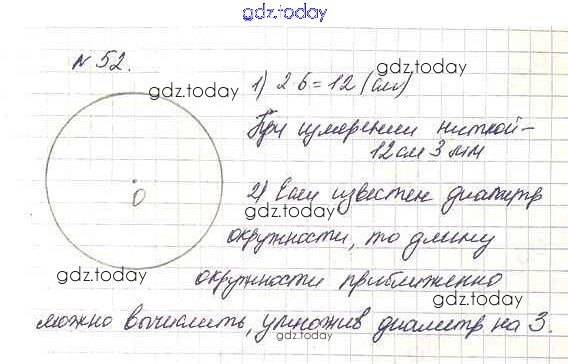 gdz.today
№ 52.
gdz.today
gdz.today
1) 2 6 = 12 (см)
При измерении ниткой -
12 см 3 мм
O
2) Если известен диаметр
gdz.today
окружности, то длину
gdz.today
окружности приближенно
gdz.today
можно вычислить, умножив диаметр на 3.
gdz.today